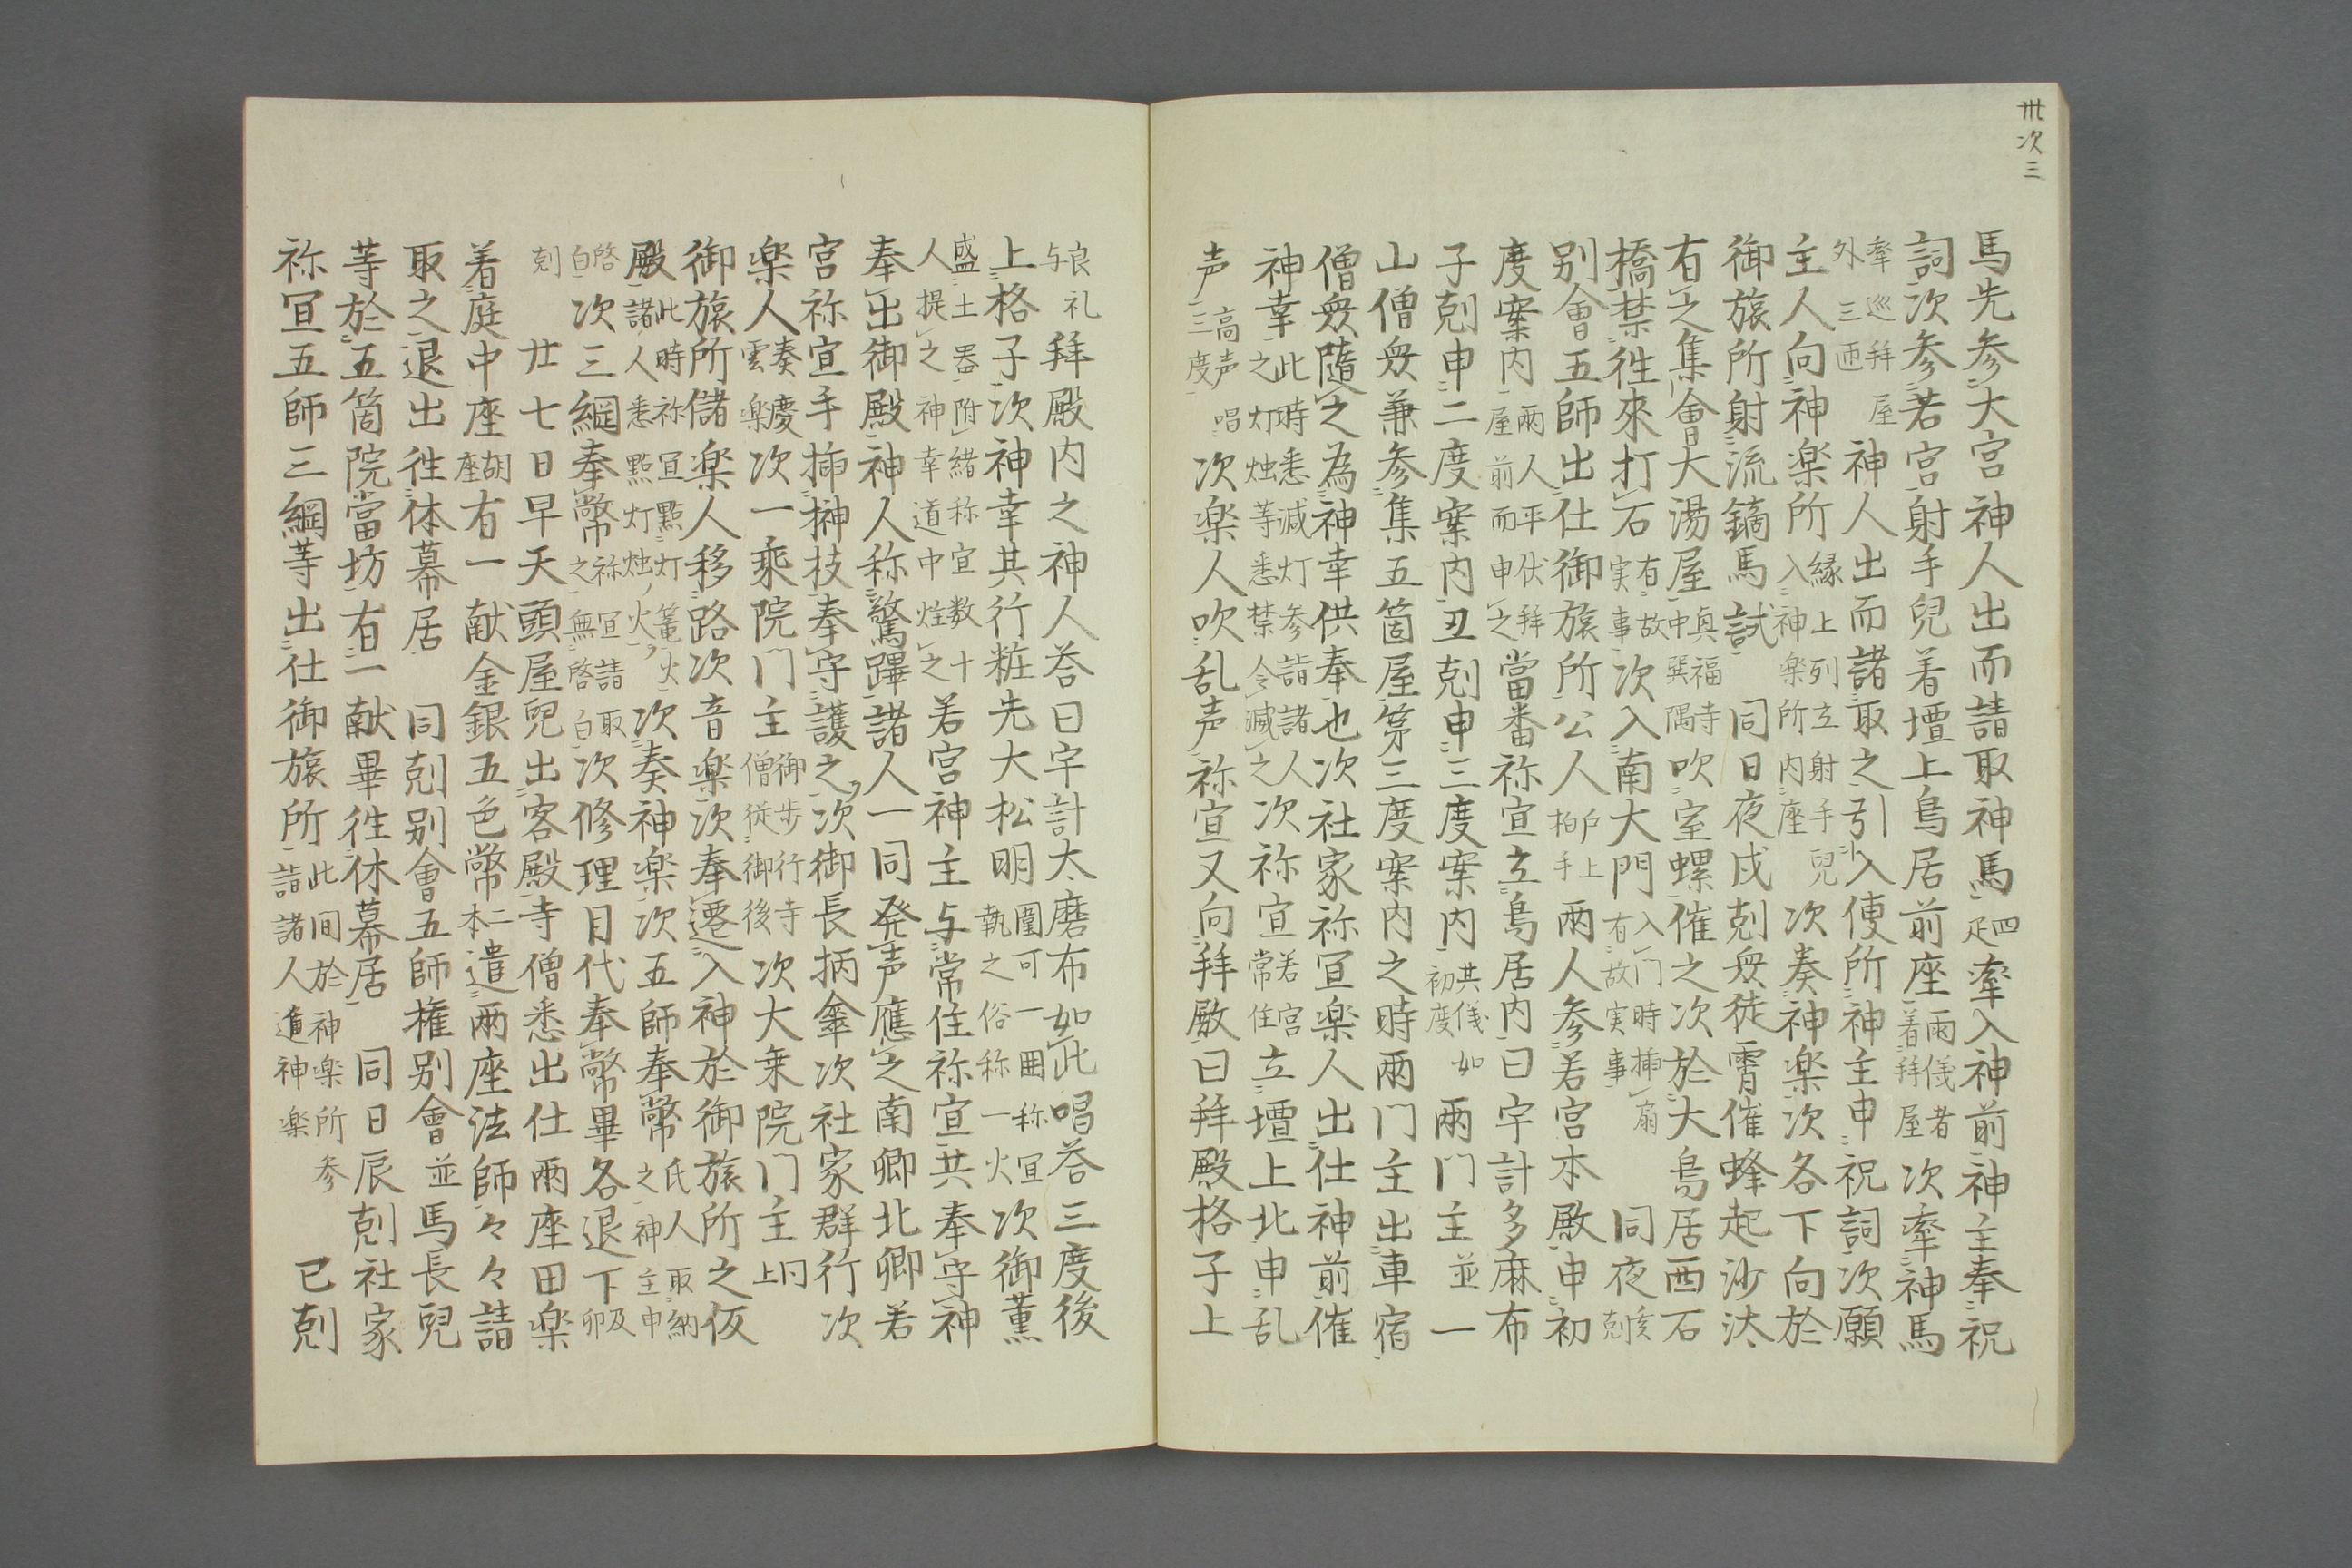 卅次三
馬先参大宮神人出而請取神馬四疋牽入神前神主奉祝
詞次参若宮射手兒着壇上鳥居前座兩儀者着拜屋次牽神馬
牽巡拜屋外三匝神人出而諸取之引入使所神主申祝詞次願
主人向神楽所縁上列立射手兒入神楽所内座次奏神楽次各下向於
御旅所射流鏑馬試同日夜戌剋衆徒霄催蜂起沙汰
有之集會大湯屋真福寺中巽隅吹室螺催之次於大鳥居西石
橋禁徃來打石有故実事次入南大門入門時挿扇有故実事同夜亥剋
別會五師出仕御旅所公人戸上柏手兩人参若宮本殿申初
度案内兩人平伏拜屋前而申之當番祢宣立鳥居内曰宇計多麻布
子剋申二度案内丑剋申三度案内其儀如初度兩门主並一
山僧衆兼参集五箇屋第三度案内之時兩门主出車宿
僧衆隨之為神幸供奉也次社家祢宣楽人出仕神前催
神幸此時悉滅灯参詣諸人之灯烛等悉禁令滅之次祢宣若宮常住立壇上北申乱
声高声唱三度次楽人吹乱声祢宣又向拜殿曰拜殿格子上
良礼与拜殿内之神人荅曰宇計太磨布如此唱荅三度後
上格子次神幸其行粧先大松明圍可一囲称宣執之俗称一火次御薫
盛土器附緒称宣数十人提之神幸道中炷之若宮神主与常住祢宣共奉守神
奉出御殿神人称驚蹕諸人一同発声應之南郷北郷若
宮祢宣手挿榊枝奉守護之次御長柄傘次社家群行次
楽人奏慶雲楽次一乘院门主御歩行寺僧徒御後次大乗院门主同上
御旅所儲楽人移路次音楽次奉遷入神於御旅所之仮
殿此時祢宣點灯篭火諸人悉點灯烛火次奏神楽次五師奉幣氏人取納之神主申
啓白次三綱奉幣祢宣請取之無啓白次修理目代奉幣畢各退下及卯
剋廿七日早天頭屋兒出客殿寺僧悉出仕兩座田楽
着庭中座胡座有一献金銀五色幣二本遣兩座法師々々請
取之退出徃休幕居同剋别會五師権别會並馬長兒
等於五箇院當坊有一献畢徃休幕居同日辰剋社家
祢宣五師三綱等出仕御旅所此间於神楽所参詣諸人進神楽巳剋